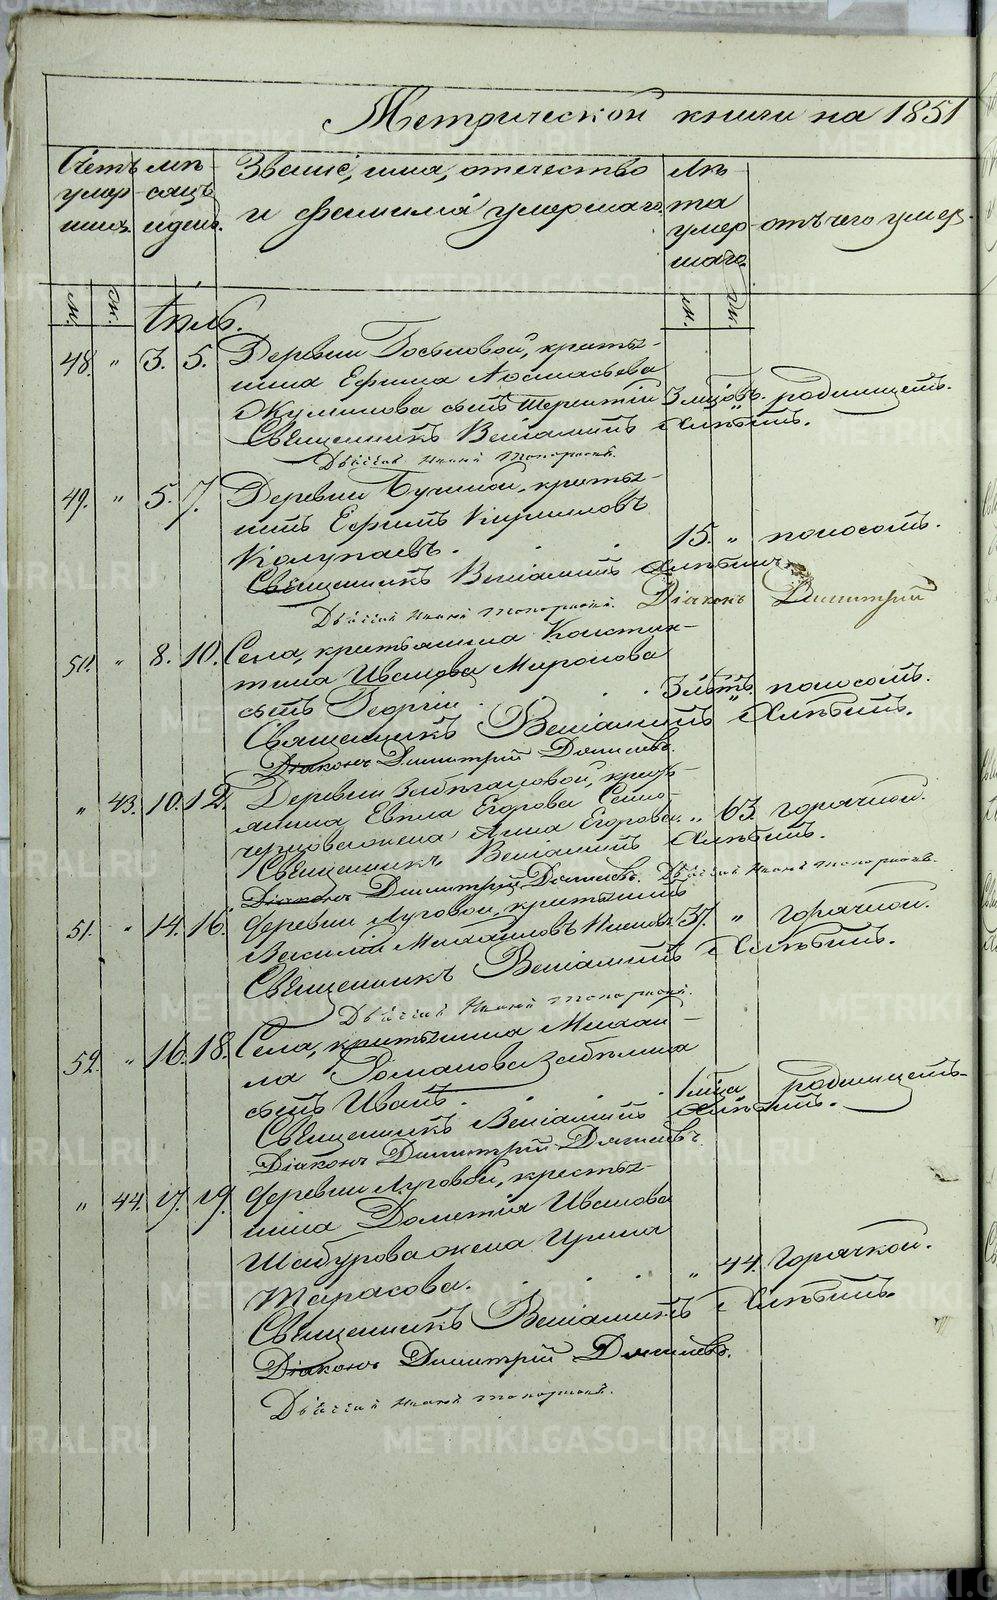 Метрической книги на 1851
Счетъ умершихъ
мѣсяцъ и день.
Званіе, имя, отечество
и фамилія умершаго.
Лѣта умершаго.
отъ чего умер-
м. ж. м. ж.
Іюль.
48. " 3. 5. Деревни крестья-
нина Ефима
сынъ 3 мѣсяц. родимцемъ.
Священникъ Веніаминъ Хлѣбинъ.
Дьячекъ Иванъ Топорковъ.
49. " 5. 7. Деревни крестья-
нинъ Ефимъ Кирилловъ
Колупаевъ. 15. " поносомъ.
Священникъ Веніаминъ Хлѣбинъ
Дьячекъ Иванъ Топорковъ. Діаконъ Димитрій
50. " 8. 10. Села, крестьянина Констан-
тина Иванова Миронова
сынъ Георгій 3 лѣтъ. " поносомъ.
Священникъ Веніаминъ Хлѣбинъ.
Діаконъ Димитрій
" 43. 10. 12. Деревни кресть-
янина Егорова
жена Анна Егорова. " 63. горячкой.
Священникъ Веніаминъ Хлѣбинъ.
Діаконъ Димитрій Дьячекъ Иванъ Топорковъ.
51. " 14. 16. Деревни Луговой, крестьянинъ
Василій Михайловъ 37. " горячкой.
Священникъ Веніаминъ Хлѣбинъ.
Дьячекъ Иванъ Топорковъ.
52. " 16. 18. Села, крестьянина Михаи-
ла Романова Забѣлина
сынъ Иванъ. 1 года родимцемъ.
Священникъ Веніаминъ Хлѣбинъ.
Діаконъ Димитрій
" 44. 17. 19. Деревни Луговой, крестья-
нина Дометія Иванова
Шабурова жена Ирина
Тарасова. " 44. горячкой.
Священникъ Веніаминъ Хлѣбинъ.
Діаконъ Димитрій
Дьячекъ Иванъ Топорковъ.
METRIKI.GASO-URAL.RU